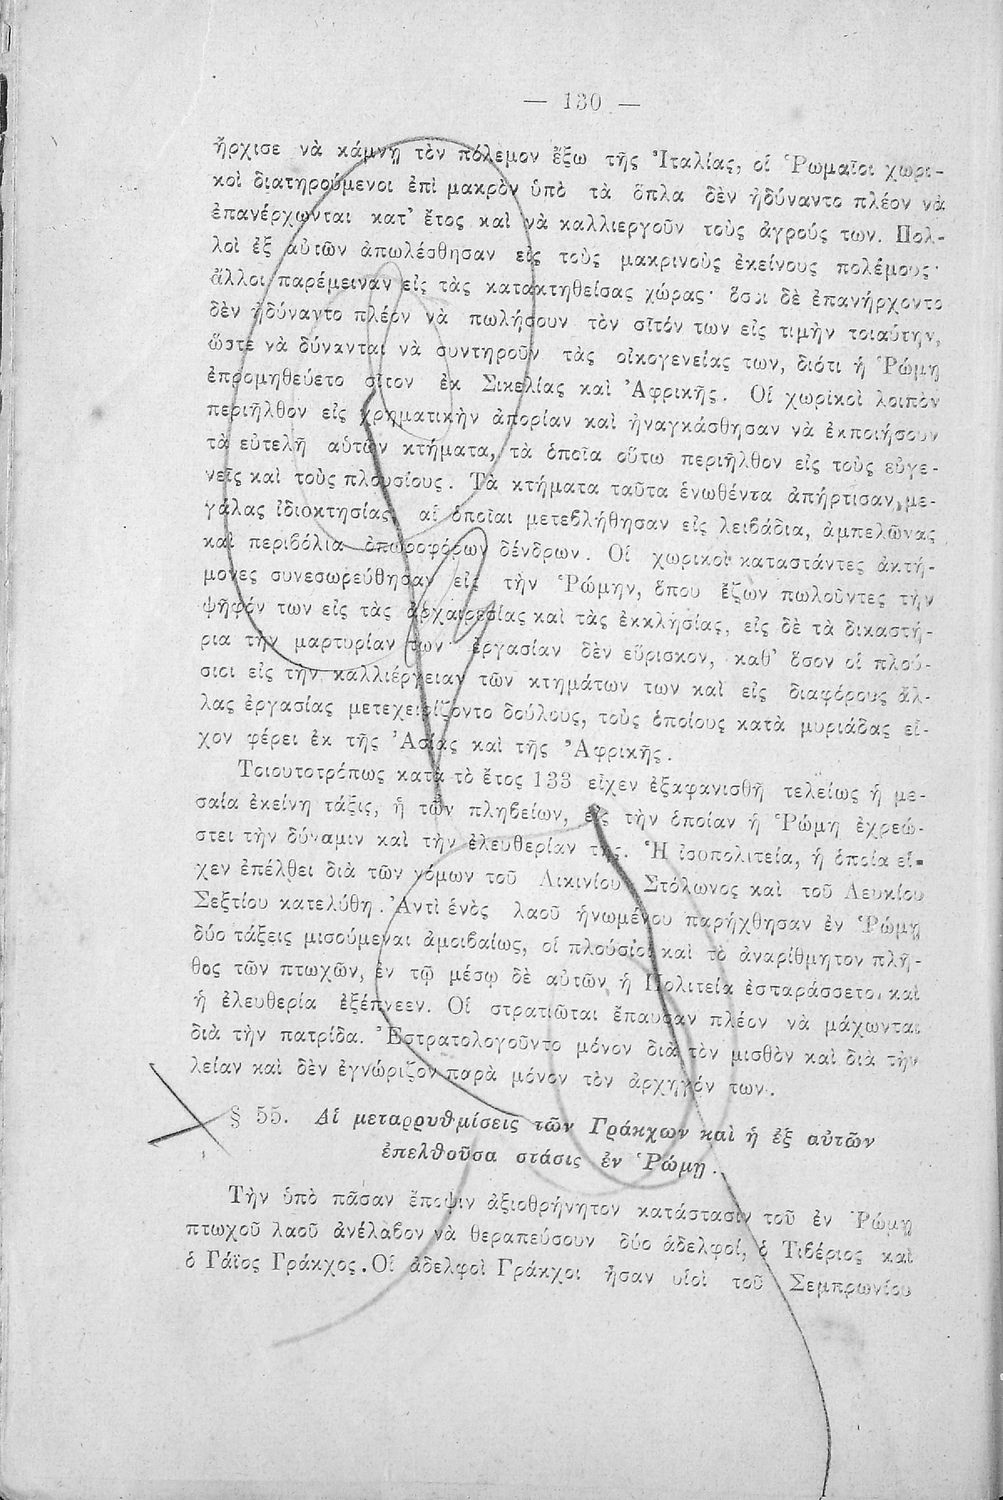 — 130 —
ἤρχισε νὰ κάμνῃ τὸν πόλεμον ἔξω τῆς Ἰταλίας, οἱ Ῥωμαῖοι χωρι-
κοὶ διατηρούμενοι ἐπὶ μακρὸν ὑπὸ τὰ ὅπλα δὲν ἠδύναντο πλέον νὰ
ἐπανέρχωνται κατ' ἔτος καὶ νὰ καλλιεργοῦν τοὺς ἀγρούς των. Πολ-
λοὶ ἐξ αὐτῶν ἀπωλέσθησαν εἰς τοὺς μακρινοὺς ἐκείνους πολέμους·
ἄλλοι παρέμειναν εἰς τὰς κατακτηθείσας χώρας· ὅσοι δὲ ἐπανήρχοντο
δὲν ἠδύναντο πλέον νὰ πωλήσουν τὸν σῖτόν των εἰς τιμὴν τοιαύτην,
ὥστε νὰ δύνανται νὰ συντηροῦν τὰς οἰκογενείας των, διότι ἡ Ῥώμη
ἐπρομηθεύετο σῖτον ἐκ Σικελίας καὶ Ἀφρικῆς. Οἱ χωρικοὶ λοιπὸν
περιῆλθον εἰς χρηματικὴν ἀπορίαν καὶ ἠναγκάσθησαν νὰ ἐκποιήσουν
τὰ εὐτελῆ αὐτῶν κτήματα, τὰ ὁποῖα οὕτω περιῆλθον εἰς τοὺς εὐγε-
νεῖς καὶ τοὺς πλουσίους. Τὰ κτήματα ταῦτα ἑνωθέντα ἀπήρτισαν με-
γάλας ἰδιοκτησίας, αἱ ὁποῖαι μετεβλήθησαν εἰς λειβάδια, ἀμπελῶνας
καὶ περιβόλια ὀπωροφόρων δένδρων. Οἱ χωρικοὶ καταστάντες ἀκτή-
μονες συνεσωρεύθησαν εἰς τὴν Ῥώμην, ὅπου ἔζων πωλοῦντες τὴν
ψῆφόν των εἰς τὰς ἀρχαιρεσίας καὶ τὰς ἐκκλησίας, εἰς δὲ τὰ δικαστή-
ρια τὴν μαρτυρίαν των· ἐργασίαν δὲν εὕρισκον, καθ' ὅσον οἱ πλού-
σιοι εἰς τὴν καλλιέργειαν τῶν κτημάτων των καὶ εἰς διαφόρους ἄλ-
λας ἐργασίας μετεχειρίζοντο δούλους, τοὺς ὁποίους κατὰ μυριάδας εἶ-
χον φέρει ἐκ τῆς Ἀσίας καὶ τῆς Ἀφρικῆς.
Τοιουτοτρόπως κατὰ τὸ ἔτος 133 εἶχεν ἐξαφανισθῆ τελείως ἡ με-
σαία ἐκείνη τάξις, ἡ τῶν πληβείων, εἰς τὴν ὁποίαν ἡ Ῥώμη ἐχρεώ-
στει τὴν δύναμιν καὶ τὴν ἐλευθερίαν της. Ἡ ἰσοπολιτεία, ἡ ὁποία εἶ-
χεν ἐπέλθει διὰ τῶν νόμων τοῦ Λικινίου Στόλωνος καὶ τοῦ Λευκίου
Σεξτίου κατελύθη. Ἀντὶ ἑνὸς λαοῦ ἡνωμένου παρήχθησαν ἐν Ῥώμῃ
δύο τάξεις μισούμεναι ἀμοιβαίως, οἱ πλούσιοι καὶ τὸ ἀναρίθμητον πλῆ-
θος τῶν πτωχῶν, ἐν τῷ μέσῳ δὲ αὐτῶν ἡ Πολιτεία ἐσπαράσσετο, καὶ
ἡ ἐλευθερία ἐξέπνεεν. Οἱ στρατιῶται ἔπαυσαν πλέον νὰ μάχωνται
διὰ τὴν πατρίδα. Ἐστρατολογοῦντο μόνον διὰ τὸν μισθὸν καὶ διὰ τὴν
λείαν καὶ δὲν ἐγνώριζον παρὰ μόνον τὸν ἀρχηγόν των.
§ 55. Αἱ μεταρρυθμίσεις τῶν Γράκχων καὶ ἡ ἐξ αὐτῶν
ἐπελθοῦσα στάσις ἐν Ῥώμῃ.
Τὴν ὑπὸ πᾶσαν ἔποψιν ἀξιοθρήνητον κατάστασιν τοῦ ἐν Ῥώμῃ
πτωχοῦ λαοῦ ἀνέλαβον νὰ θεραπεύσουν δύο ἀδελφοί, ὁ Τιβέριος καὶ
ὁ Γάϊος Γράκχος. Οἱ ἀδελφοὶ Γράκχοι ἦσαν υἱοὶ τοῦ Σεμπρωνίου